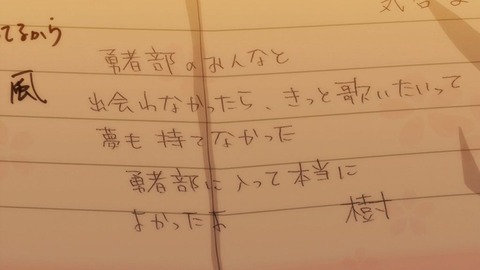 てるから
風
勇者部のみんなと
出会わなかったら、きっと歌いたいって
夢も持てなかった
勇者部に入って本当に
よかったよ
樹